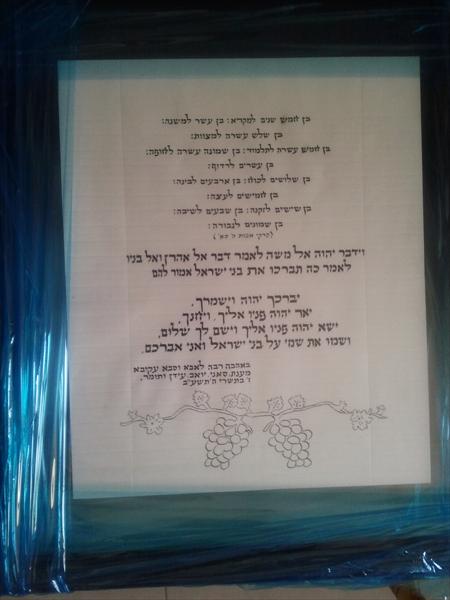 בן חמש שנים למקרא: בן עשר למשנה:
בן שלש עשרה למצוות:
בן חמש עשרה לתלמוד: בן שמונה עשרה לחופה:
בן עשרים לרדוף:
בן שלושים לכוח: בן ארבעים לבינה:
בן חמישים לעצה:
בן שישים לזקנה: בן שבעים לשיבה:
בן שמונים לגבורה:
(פרקי אבות ה' כא')
וידבר יהוה אל משה לאמר דבר אל אהרן ואל בניו
לאמר כה תברכו את בני ישראל אמור להם
יברכך יהוה וישמרך,
יאר יהוה פניו אליך, ויחנך,
ישא יהוה פניו אליך וישם לך שלום,
ושמו את שמי על בני ישראל ואני אברכם.
באהבה רבה לאבא וסבא עקיבא
מענת, סאני, יואב, עידן ותומר,
ז' בתשרי ה'תשע"ב